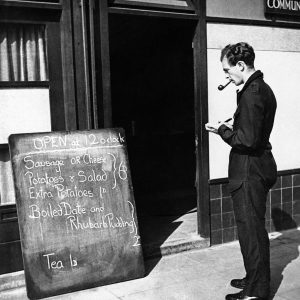 COMMUN
OPEN at 12 o'clock
Sausage or Cheese
Potatoes & Salad
6
Extra Potatoes 1ᵈ
Boiled Date and
Rhubarb Pudding
2
Tea